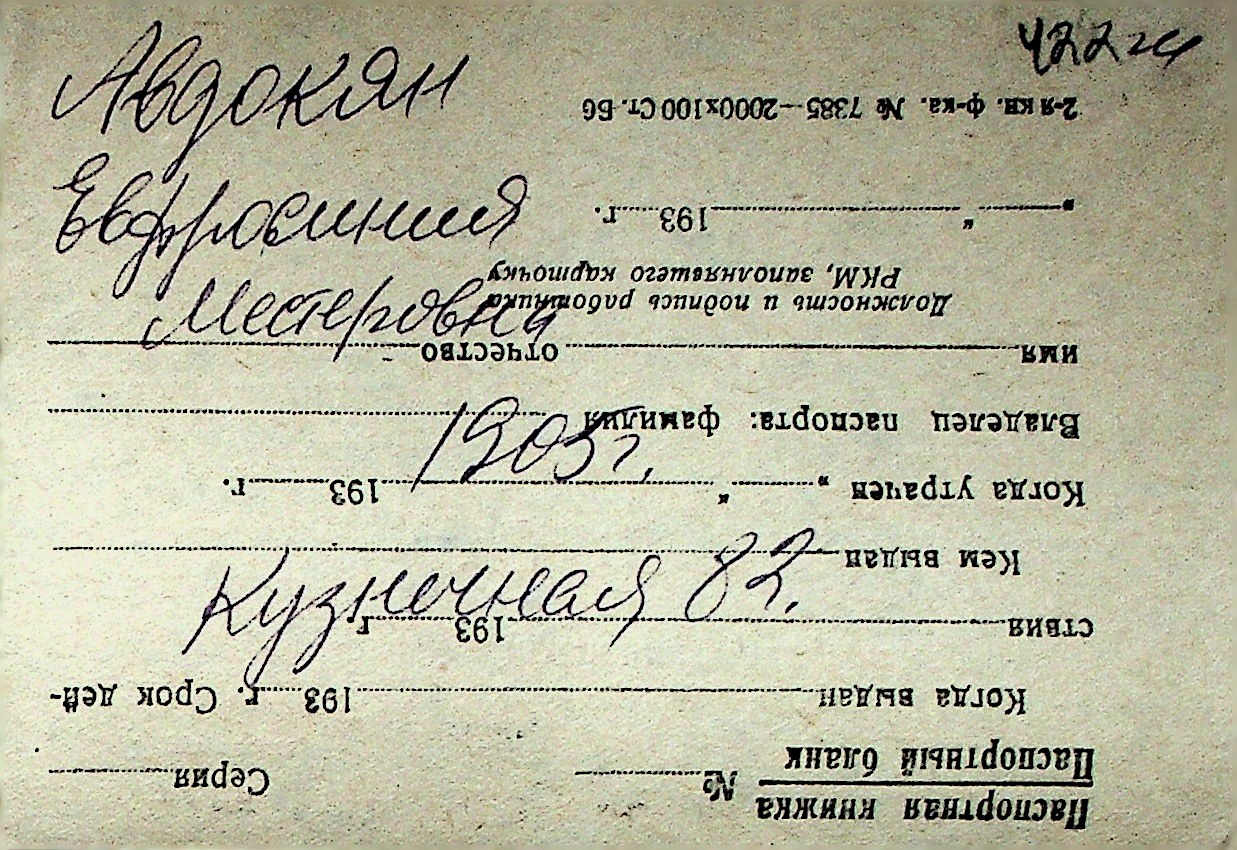 Авдокян
Евфросиния
Местеровна
1905 г.
Кузнечная 82.
Паспортная книжка
Паспортный бланк
№ Серия
Когда выдан 193 г. Срок дей-
ствия 193 г.
Кем выдан
Когда утрачен „ “ 193 г.
Владелец паспорта: фамилия
имя отчество
Должность и подпись работника
РКМ, заполнявшего карточку
„ “ 193 г.
2-я кн. ф-ка. № 7385—2000х100 Ст. Б6